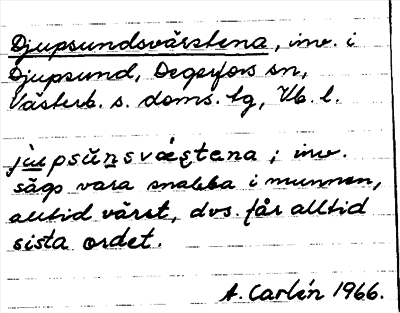 Djupsundsvärstena, inv. i
Djupsund, Degerfors sn,
Västerb. s. doms. tg, Vb. l.
jùpsŭnsvæstena ; inv.
sägs vara snabba i munnen,
alltid värst, dvs. får alltid
sista ordet.
A. Carlén 1966.